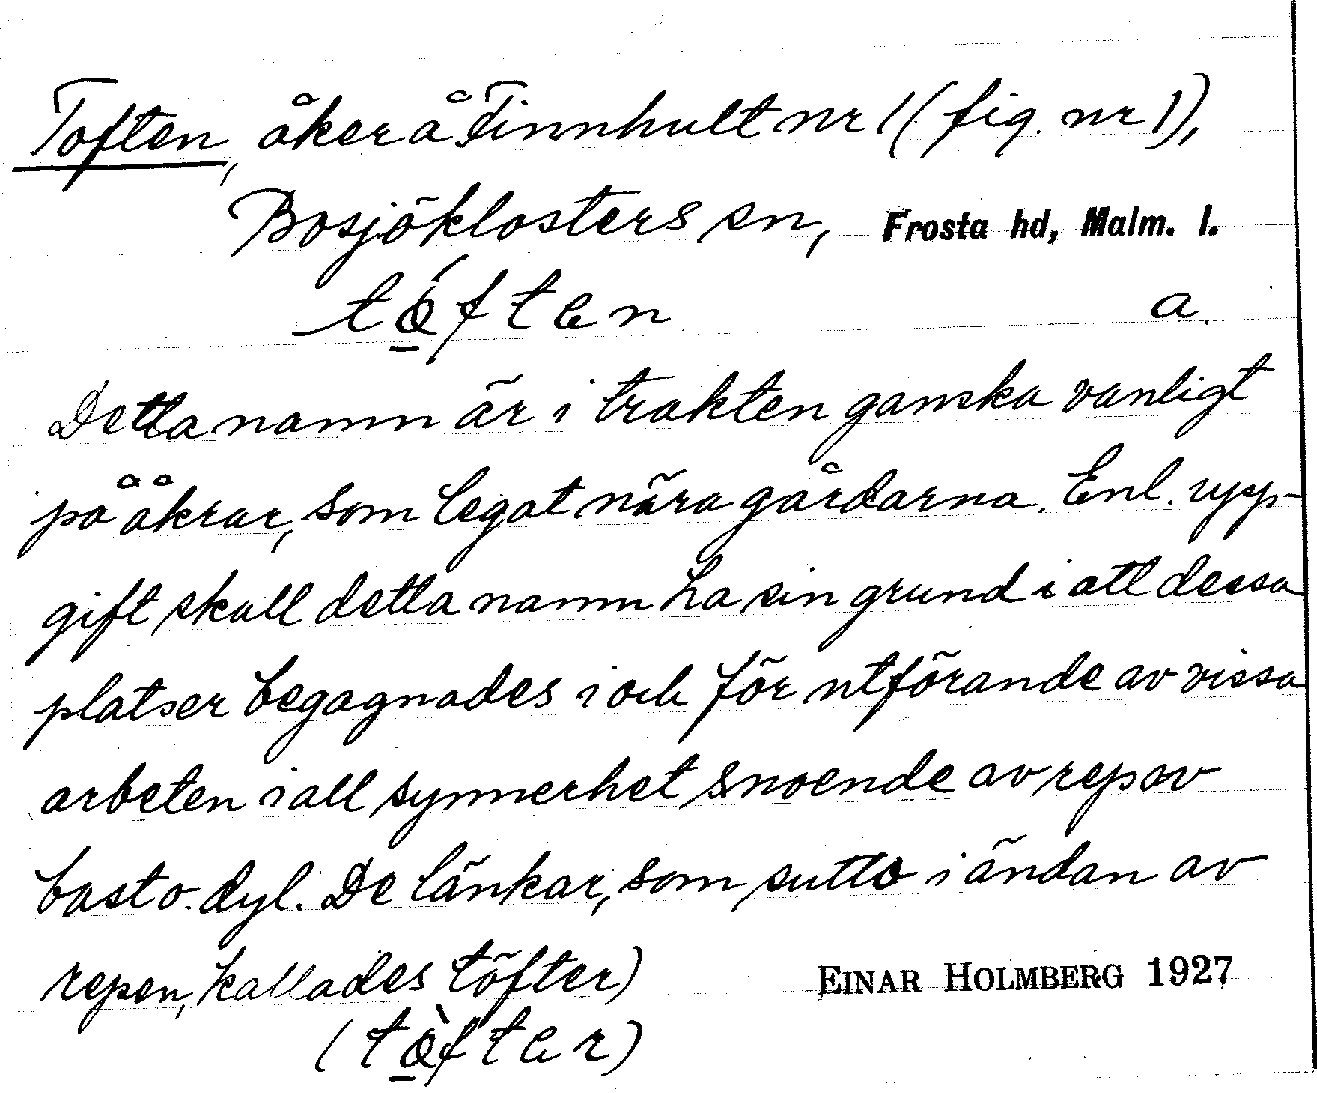 Toften, åker å Finnhult nr 1 (fig. nr 1),
Bosjöklosters sn, Frosta hd, Malm. l.
tǿften a.
Detta namn är i trakten ganska vanligt
på åkrar, som legat nära gårdarna. Enl. upp-
gift skall detta namn ha sin grund i att dessa
platser begagnades i och för utförande av vissa
arbeten i all synnerhet snoende av rep av
bast o. dyl. De länkar, som sutto i ändan av
repen, kallades töfter)
EINAR HOLMBERG 1927
(tø̀fter)